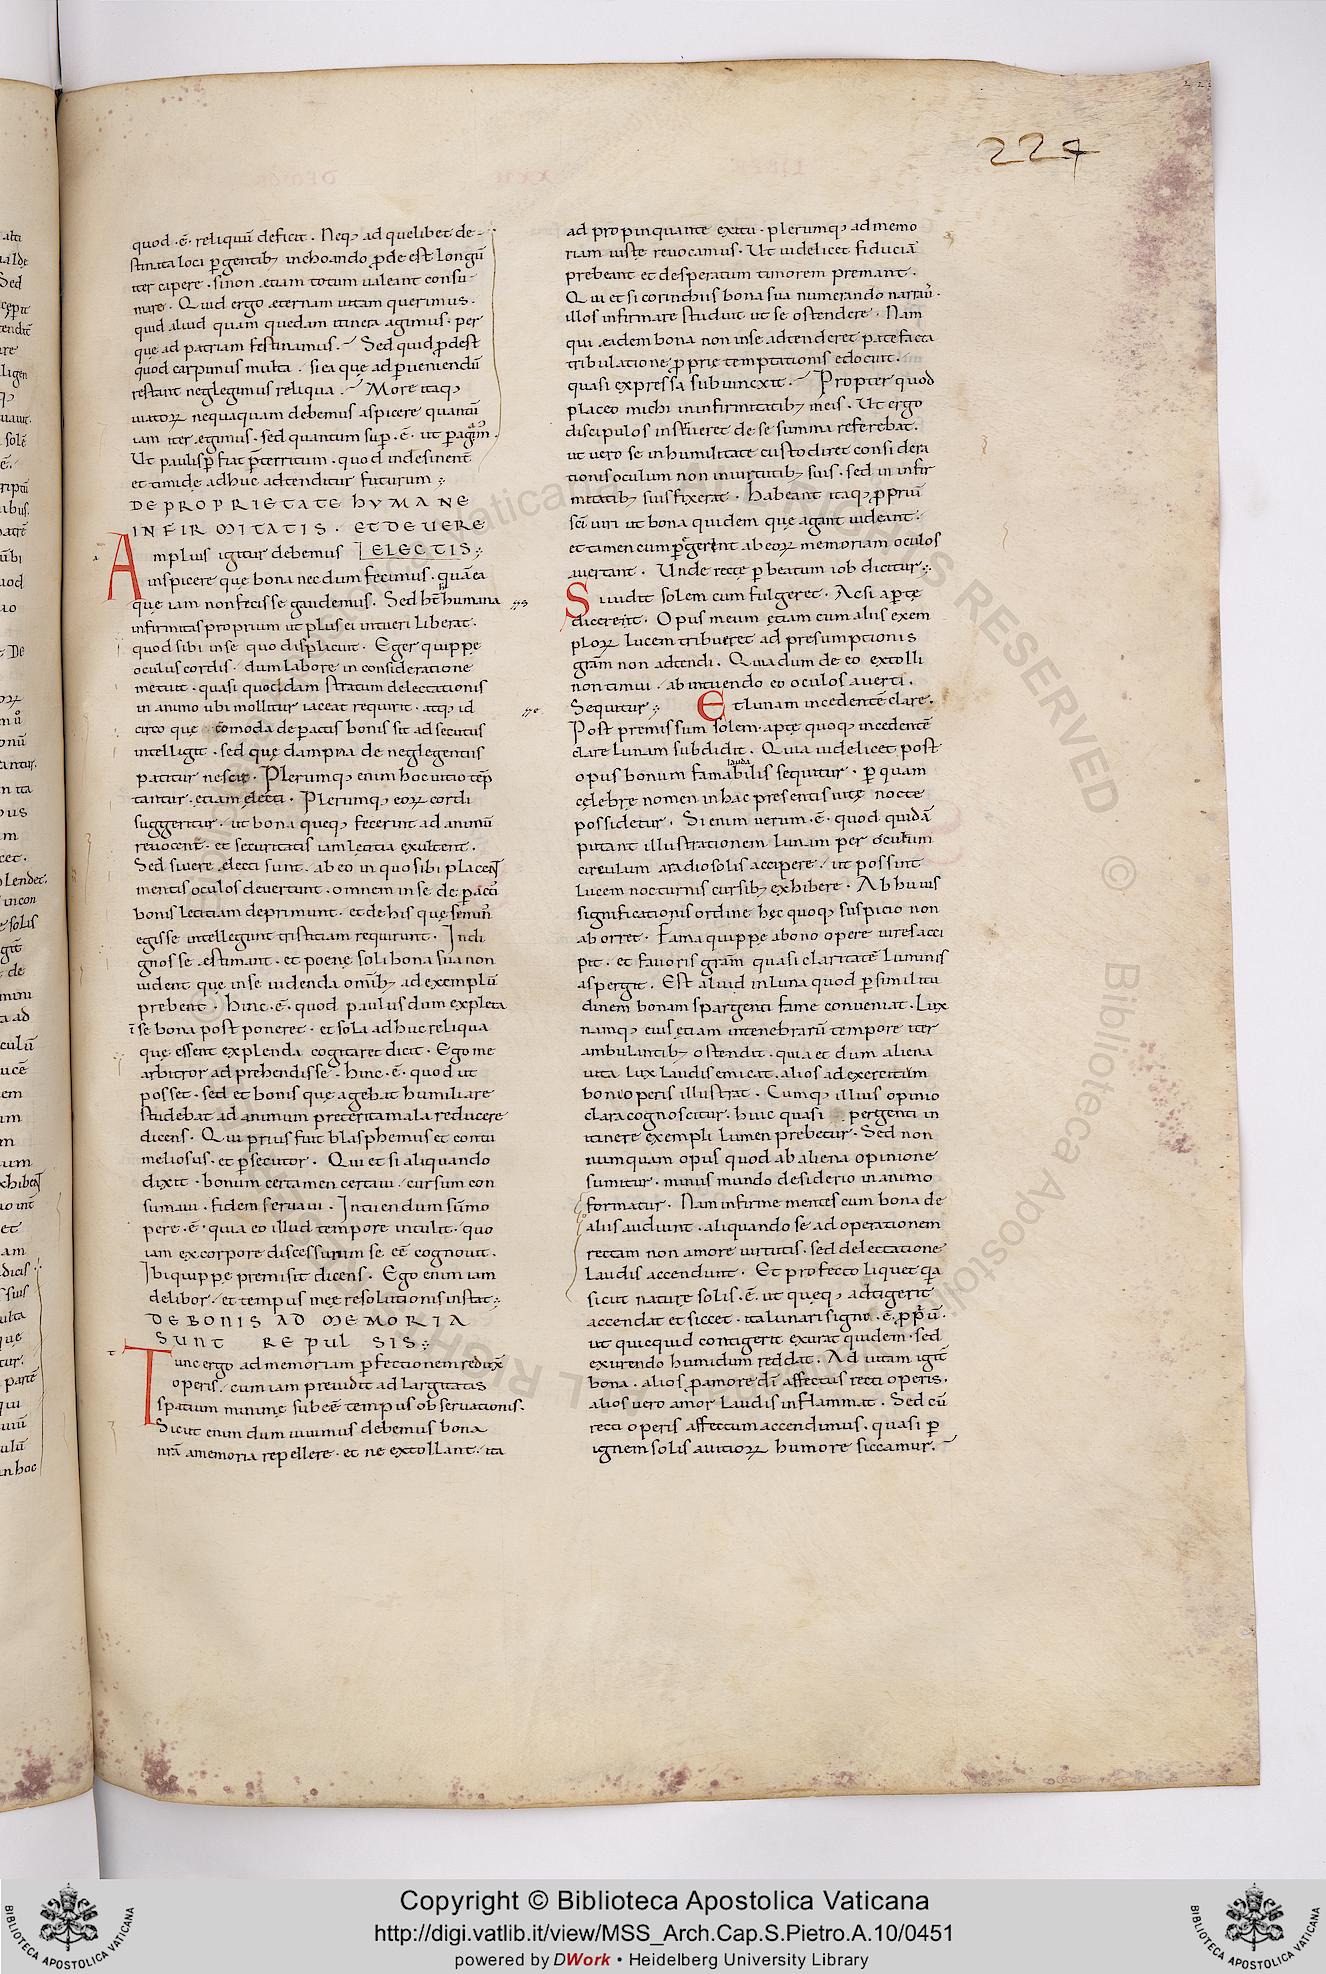 224
quod·ē· reliquū deficit. Neq; ad quelibet de-
stinata loci ꝑgentib; inchoando ꝓde est longū
iter capere· sinon etiam totum ualeant consu-
mare. Quid ergo eternam uitam querimus.
quid aliud quam quedam itinera agimus· per
quę ad patriam festinamus. Sed quid ꝓdest
quod carpimus multa· si ea quę ad ꝑueniendū
restant neglegimus reliqua. More itaq;
uiatoꝝ nequaquam debemus aspicere quantū
iam iter egimus· sed quantum suꝑ·ē· ut ꝑagam̄.
Ut paulisꝑ fiat p̄territum· quod indesinent̄
et timide adhuc adtenditur futurum
DE PROPRIETATE HVMANE
INFIRMITATIS. ET DE VERE
Amplius igitur debemus ELECTIS
inspicere quę bona necdum fecimus· quā ea
que iam non fecisse gaudemus. Sed ht̄ humana
infirmitas proprium ut plus ei intueri liberat.
quod sibi inse quo displicuit. Eger quippe
oculus cordis· dum labore in consideratione
metuit· quasi quoddam stratum delectationis
in animo ubi mollitur iaceat requirit· atq; id
circo que cōmoda de ꝑactis bonis sit adsecutus
intelligit· sed quę dampna de neglegentiis
patitur nescit. Plerumq; enim hoc uitio tēp
tantur· etiam electi· Plerumq; eoꝝ cordi
suggeritur· ut bona queq; fecerint ad animū
reuocent· et securitatis iam letitia exultent.
Sed si uere electi sunt· ab eo in quo sibi placent
mentis oculos deuertunt· omnem in se de ꝑactis
bonis letitiam deprimunt· et de his quę se minus
egisse intellegunt tristitiam requirunt. Indi
gnos se estimant· et poenę soli bona sua non
uident que inse uidenda omīb; ad exemplū
prebent. hinc·ē· quod paulus dum expleta
ī se bona post poneret· et sola adhuc reliqua
quę essent explenda cogitaret dicit. Ego me
arbitror adprehendisse. hinc·ē· quod ut
posset· sed et bonis quę agebat humiliare
studebat ad animum preterita mala reducere
dicens. Qui prius fui blasphemus et contu
meliosus· et ꝑsecutor. Qui et si aliquando
dixit· bonum certamen certaui· cursum con
sumaui· fidem seruaui. Intuendum sūmo
pere·ē· quia eo illud tempore intulit· quo
iam ex corpore discessurum se eē cognouit.
Ibi quippe premisit dicens. Ego enim iam
delibor· et tempus meę resolutionis instat
DE BONIS AD MEMORIA
SUNT REPULSIS
Tunc ergo ad memoriam ꝑfectionem redux̄
operis· cum iam preuidit ad largitatis
spatium minimę subeē tempus obseruationis.
Sicut enim dum uiuimus debemus bona
nrā amemoria repellere· et ne extollant· ita
ad propinquante exitu· plerumq; ad memo
riam iuste reuocamus. Ut uidelicet fiduciā
prebeant et desperatum timorem premant.
Qui et si corinthiis bona sua numerando narrau̅.
illos infirmare studuit ut se ostendere. Nam
qui eadem bona non inse adtenderet patefacta
tribulatione ꝓprię temptationis edocuit.
quasi expressa subiuncxit. Propter quod
placeo michi ininfirmitatib; meis. Ut ergo
discipulos instrueret de se summa referebat.
ut uero se in humilitate custodiret considera
tionis oculum non inuirtutib; suis· sed in infir
mitatib; suis fixerat. Habeant itaq; ꝓpriū
sc̄i uiri ut bona quidem quę agant uideant.
et tamen cum ꝑgerint ab eoꝝ memoriam oculos
auertant. Unde recte ꝑ beatum iob dicitur
Si uidit solem cum fulgeret. Acsi aperte
dicerent. Opus meum etiam cum aliis exem
ploꝝ lucem tribueret ad presumptionis
gram̄ non adtendi. Quia dum de eo extolli
non timui· ab intuendo eo oculos auerti.
Sequitur Et lunam incedentē clare.
Post premissum solem· apte quoq; incedentē
clare lunam subdidit. Quia uidelicet post
lauda
opus bonum famabilis sequitur· ꝑ quam
celebre nomen in hac presentis uitę nocte
possidetur. Si enim uerum·ē· quod quidā
putant illustrationem lunam per occultum
circulum aradio solis accipere· ut possint
lucem nocturnis cursib; exhibere. Ab huius
significationis ordine hęc quoq; suspicio non
ab orret. Fama quippe abono opere uires acci
pit· et fauoris gram̄ quasi claritatē luminis
aspergit. Est aliud in luna quod ꝑ similitu
dinem bonam spargenti fame conueniat. Lux
namq; eius etiam intenebrarū tempore iter
ambulantib; ostendit· quia et dum aliena
uita lux laudis emicat· alios ad exercitium
boni operis illustrat. Cumq; illius opinio
clara cognoscitur· huic quasi pergenti in
itinere exempli lumen prebetur. Sed non
numquam opus quod ab aliena opinione
sumitur· minus mundo desiderio in animo
formatur. Nam infirme mentes cum bona de
aliis audiunt· aliquando se ad operationem
rectam non amore uirtutis· sed delectatione
laudis accendunt. Et profecto liquet qā
sicut naturę solis·ē· ut quęq; adtigerit
accendat et siccet· ita lunari signo·ē· ꝓpr̄ū.
ut quicquid contigerit exurat quidem· sed
exurendo humidum reddat. Ad uitam igit̄
bona· alios ꝓ amore dī affectus recti operis.
alios uero amor laudis inflammat. Sed cū
recti operis affectum accendimus· quasi ꝑ
ignem solis a uitioꝝ humore siccamur.
Copyright © Biblioteca Apostolica Vaticana
http://digi.vatlib.it/view/MSS_Arch.Cap.S.Pietro.A.10/0451
powered by DWork • Heidelberg University Library